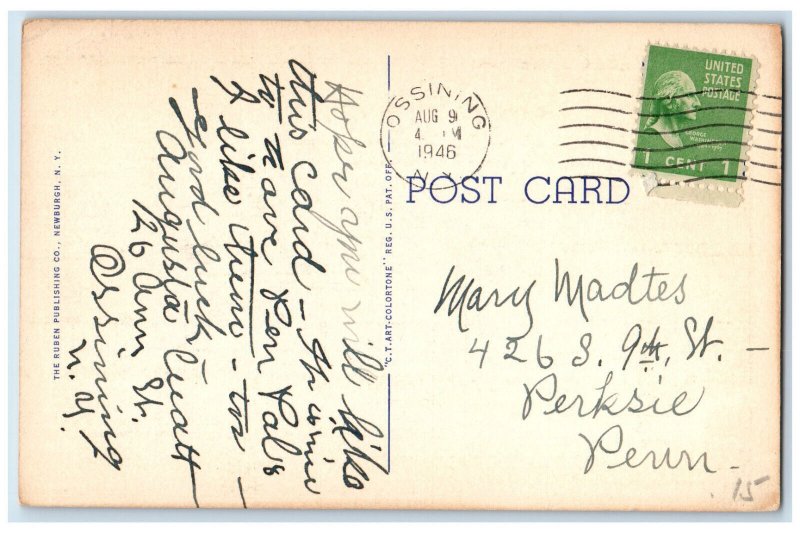 Hope you will like
this card - It is nice
to have Pen Pals
I like them - too -
Good luck
Augusta
126 Ann St.
Ossining
N.Y.
THE RUBEN PUBLISHING CO., NEWBURGH, N. Y.
"C.T. ART-COLORTONE" REG. U.S. PAT. OFF.
OSSINING
AUG 9
4 PM
1946
N.Y.
POST CARD
UNITED
STATES
POSTAGE
GEORGE
1 CENT 1
Mary Madtes
426 S. 9th. St. -
Perksie
Penn -
15